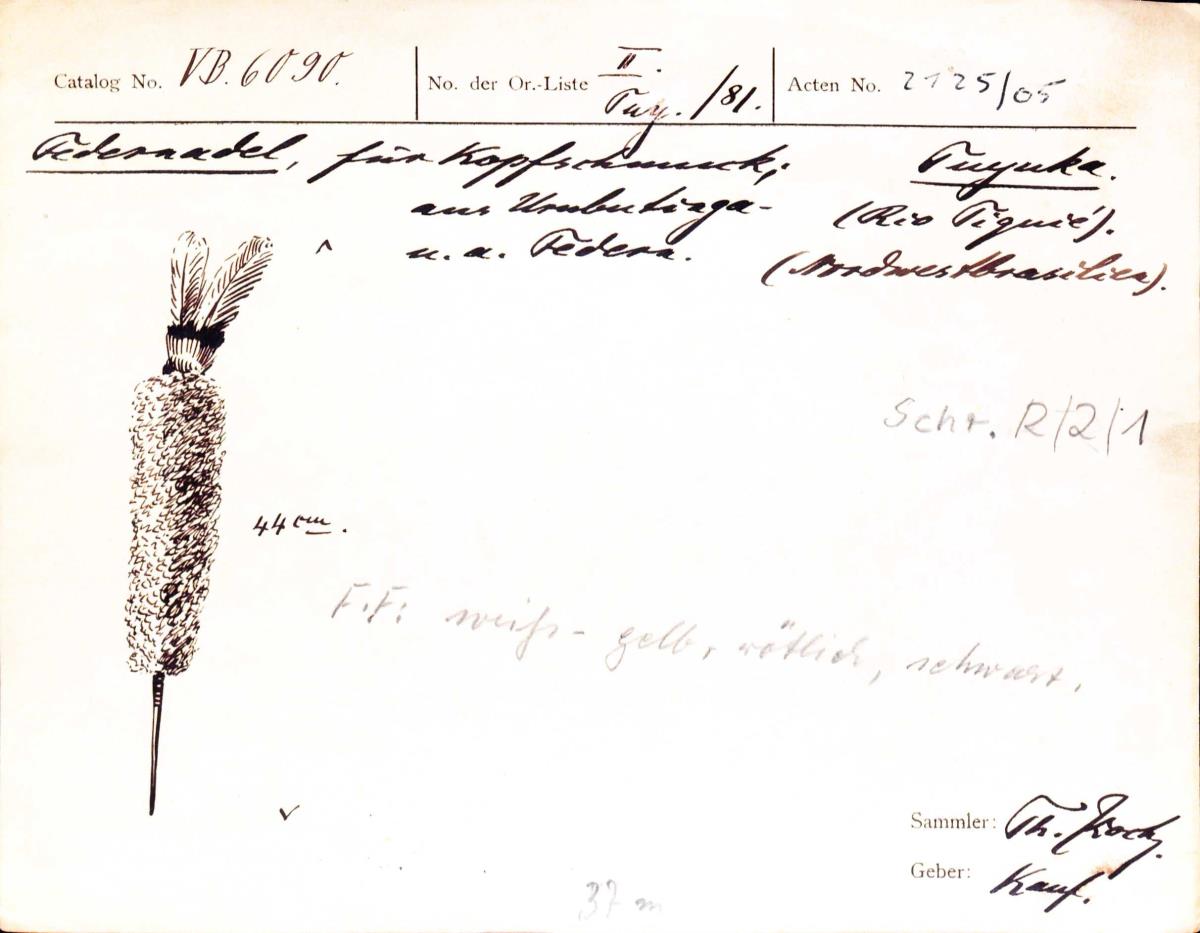 Catalog No. VB. 6090. No. der Or.-Liste II. Tuy. /81. Acten No. 2125/05
Federnadel, für Kopfschmuck; Tuyuka.
aus Urubutinga- (Rio Tiquié).
u. a. Federn. (Nordwestbrasilien).
Schr. R/2/1
44 cm.
F.F: weiß- gelb, rötlich, schwarz.
Sammler: Th. Koch.
Geber: Kauf.
37 m